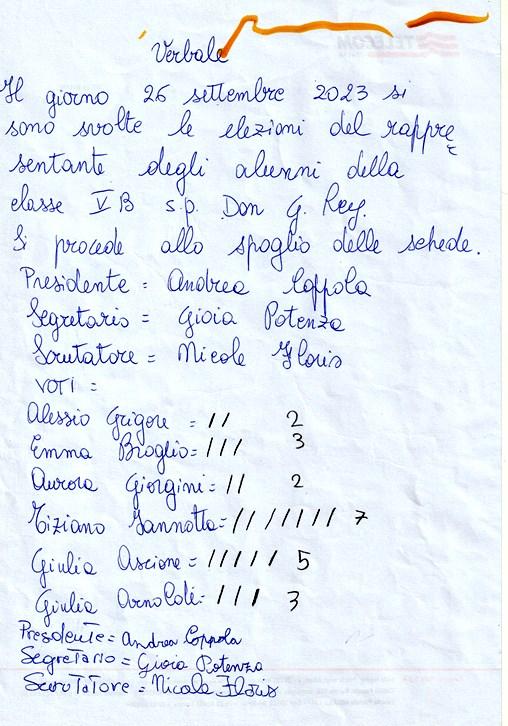 Verbale
Il giorno 26 settembre 2023 si
sono svolte le elezioni del rappre
sentante degli alunni della
classe V B s.p. Don G. Rey.
Si procede allo spoglio delle schede.
Presidente = Andrea Coppola
Segretario = Gioia Potenza
Scrutatore = Nicole Floris
VOTI =
Alessio Grigore = // 2
Emma Broglio = /// 3
Aurora Giorgini = // 2
Tiziano Iannotta = /////// 7
Giulia Ascione = ///// 5
Giulia Arnoldi = /// 3
Presidente = Andrea Coppola
Segretario = Gioia Potenza
Scrutatore = Nicole Floris